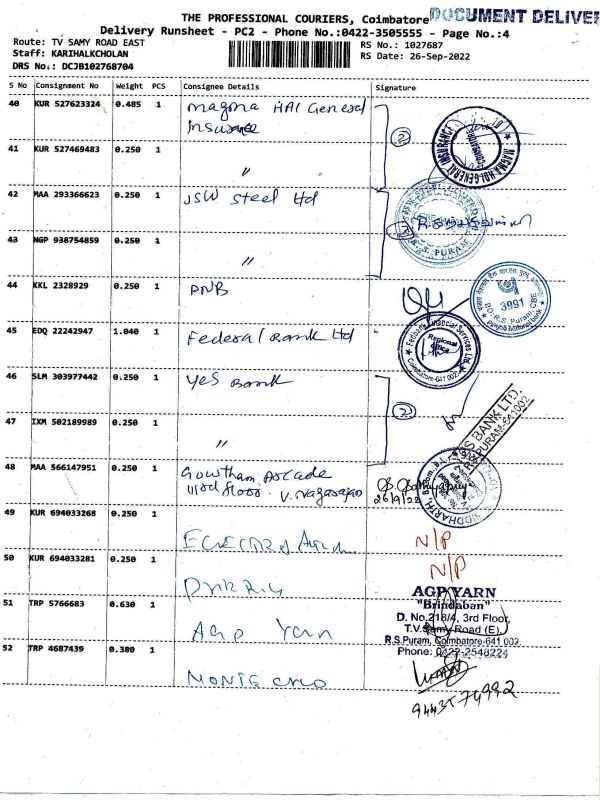 THE PROFESSIONAL COURIERS, Coimbatore
DOCUMENT DELIVER
Delivery Runsheet - PC2 - Phone No.:0422-3505555 - Page No.:4
Route: TV SAMY ROAD EAST
RS No.: 1027687
Staff: KARIHALKCHOLAN
RS Date: 26-Sep-2022
DRS No.: DCJB102768704
S No Consignment No Weight PCS Consignee Details Signature
40 KUR 527623324 0.485 1 Magma HDI General
Insurance
41 KUR 527469483 0.250 1 "
2
MAGMA HDI GENERAL INSURANCE
42 MAA 293366623 0.250 1 JSW Steel Ltd
43 NGP 938754859 0.250 1 "
R.S. PURAM
44 KKL 2328929 0.250 1 PNB
3991
BO: R.S. Puram, CBE
45 EDQ 22242947 1.040 1 Federal Bank Ltd
Fedbank Financial Services Ltd.
Regional
Office
Coimbatore-641 002.
46 SLM 303977442 0.250 1 Yes Bank
47 IXM 502189989 0.250 1 "
2
YES BANK LTD.
R.S. PURAM-641002
48 MAA 566147951 0.250 1 Gowtham Arcade
IIIrd floor. V. Nagarajan
26/9/22
49 KUR 694033268 0.250 1
N/P
50 KUR 694033281 0.250 1
N/P
51 TRP 5766683 0.630 1 AGP Yarn
AGP YARN
"Brindaban"
D. No.218/4, 3rd Floor,
T.V.Samy Road (E),
R.S.Puram, Coimbatore-641 002.
Phone: 0422-2548224
52 TRP 4687439 0.380 1 MONTE CARLO
9443574992